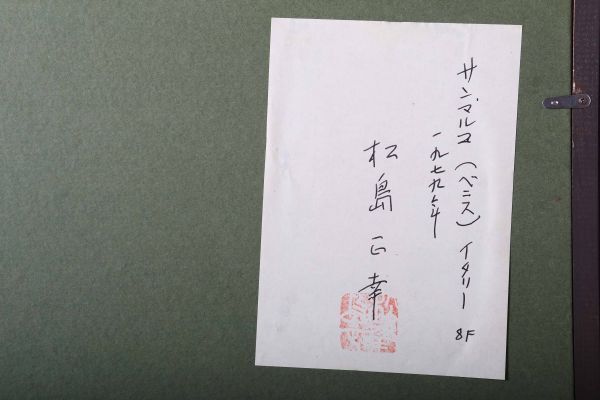 サンマルコ（ベニス）イタリー 8F
一九七九年
松島正幸